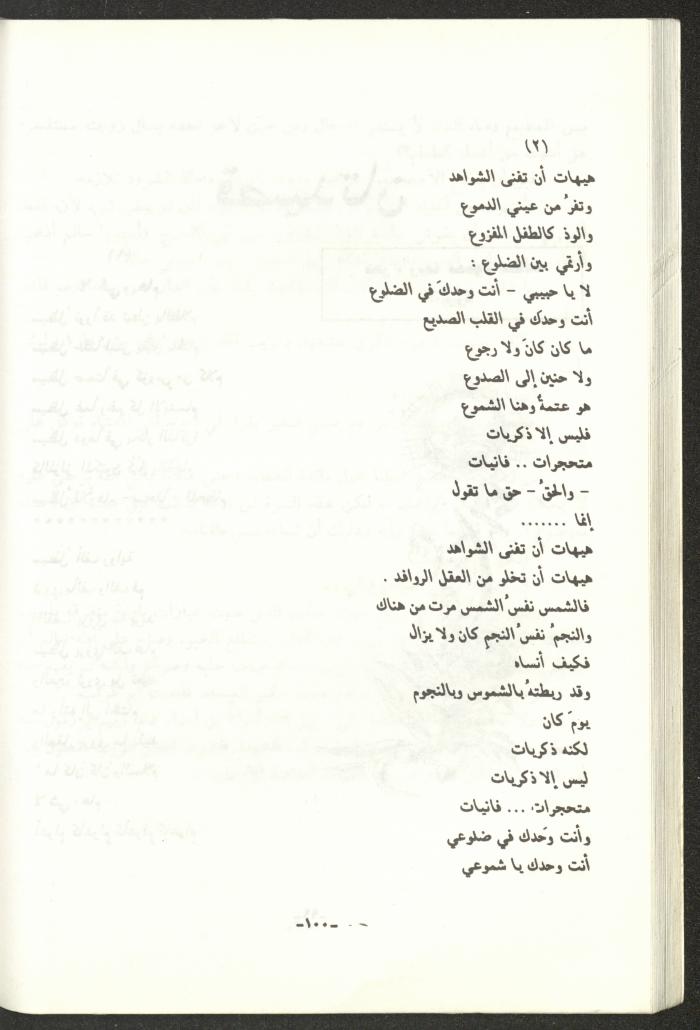 (٢)
هيهات أن تفنى الشواهد
وتفرُ من عيني الدموع
والوذ كالطفل المفزوع
وأرتمي بين الضلوع :
لا يا حبيبي - أنت وحدكَ في الضلوع
أنت وحدَك في القلب الصديع
ما كان كانَ ولا رجوع
ولا حنين إلى الصدوع
هو عتمةُ وهنا الشموع
فليس إلا ذكريات
متحجرات .. فانيات
- والحقُ - حق ما تقول
إنما .......
هيهات أن تفنى الشواهد
هيهات أن تخلو من العقل الروافد .
فالشمس نفسُ الشمس مرت من هناك
والنجمُ نفسُ النجمِ كان ولا يزال
فكيف أنساه
وقد ربطتهُ بالشموس وبالنجوم
يومَ كان
لكنه ذكريات
ليس إلا ذكريات
متحجرات ... فانيات
وأنت وحَدك في ضلوعي
أنت وحدك يا شموعي
-١٠٠-